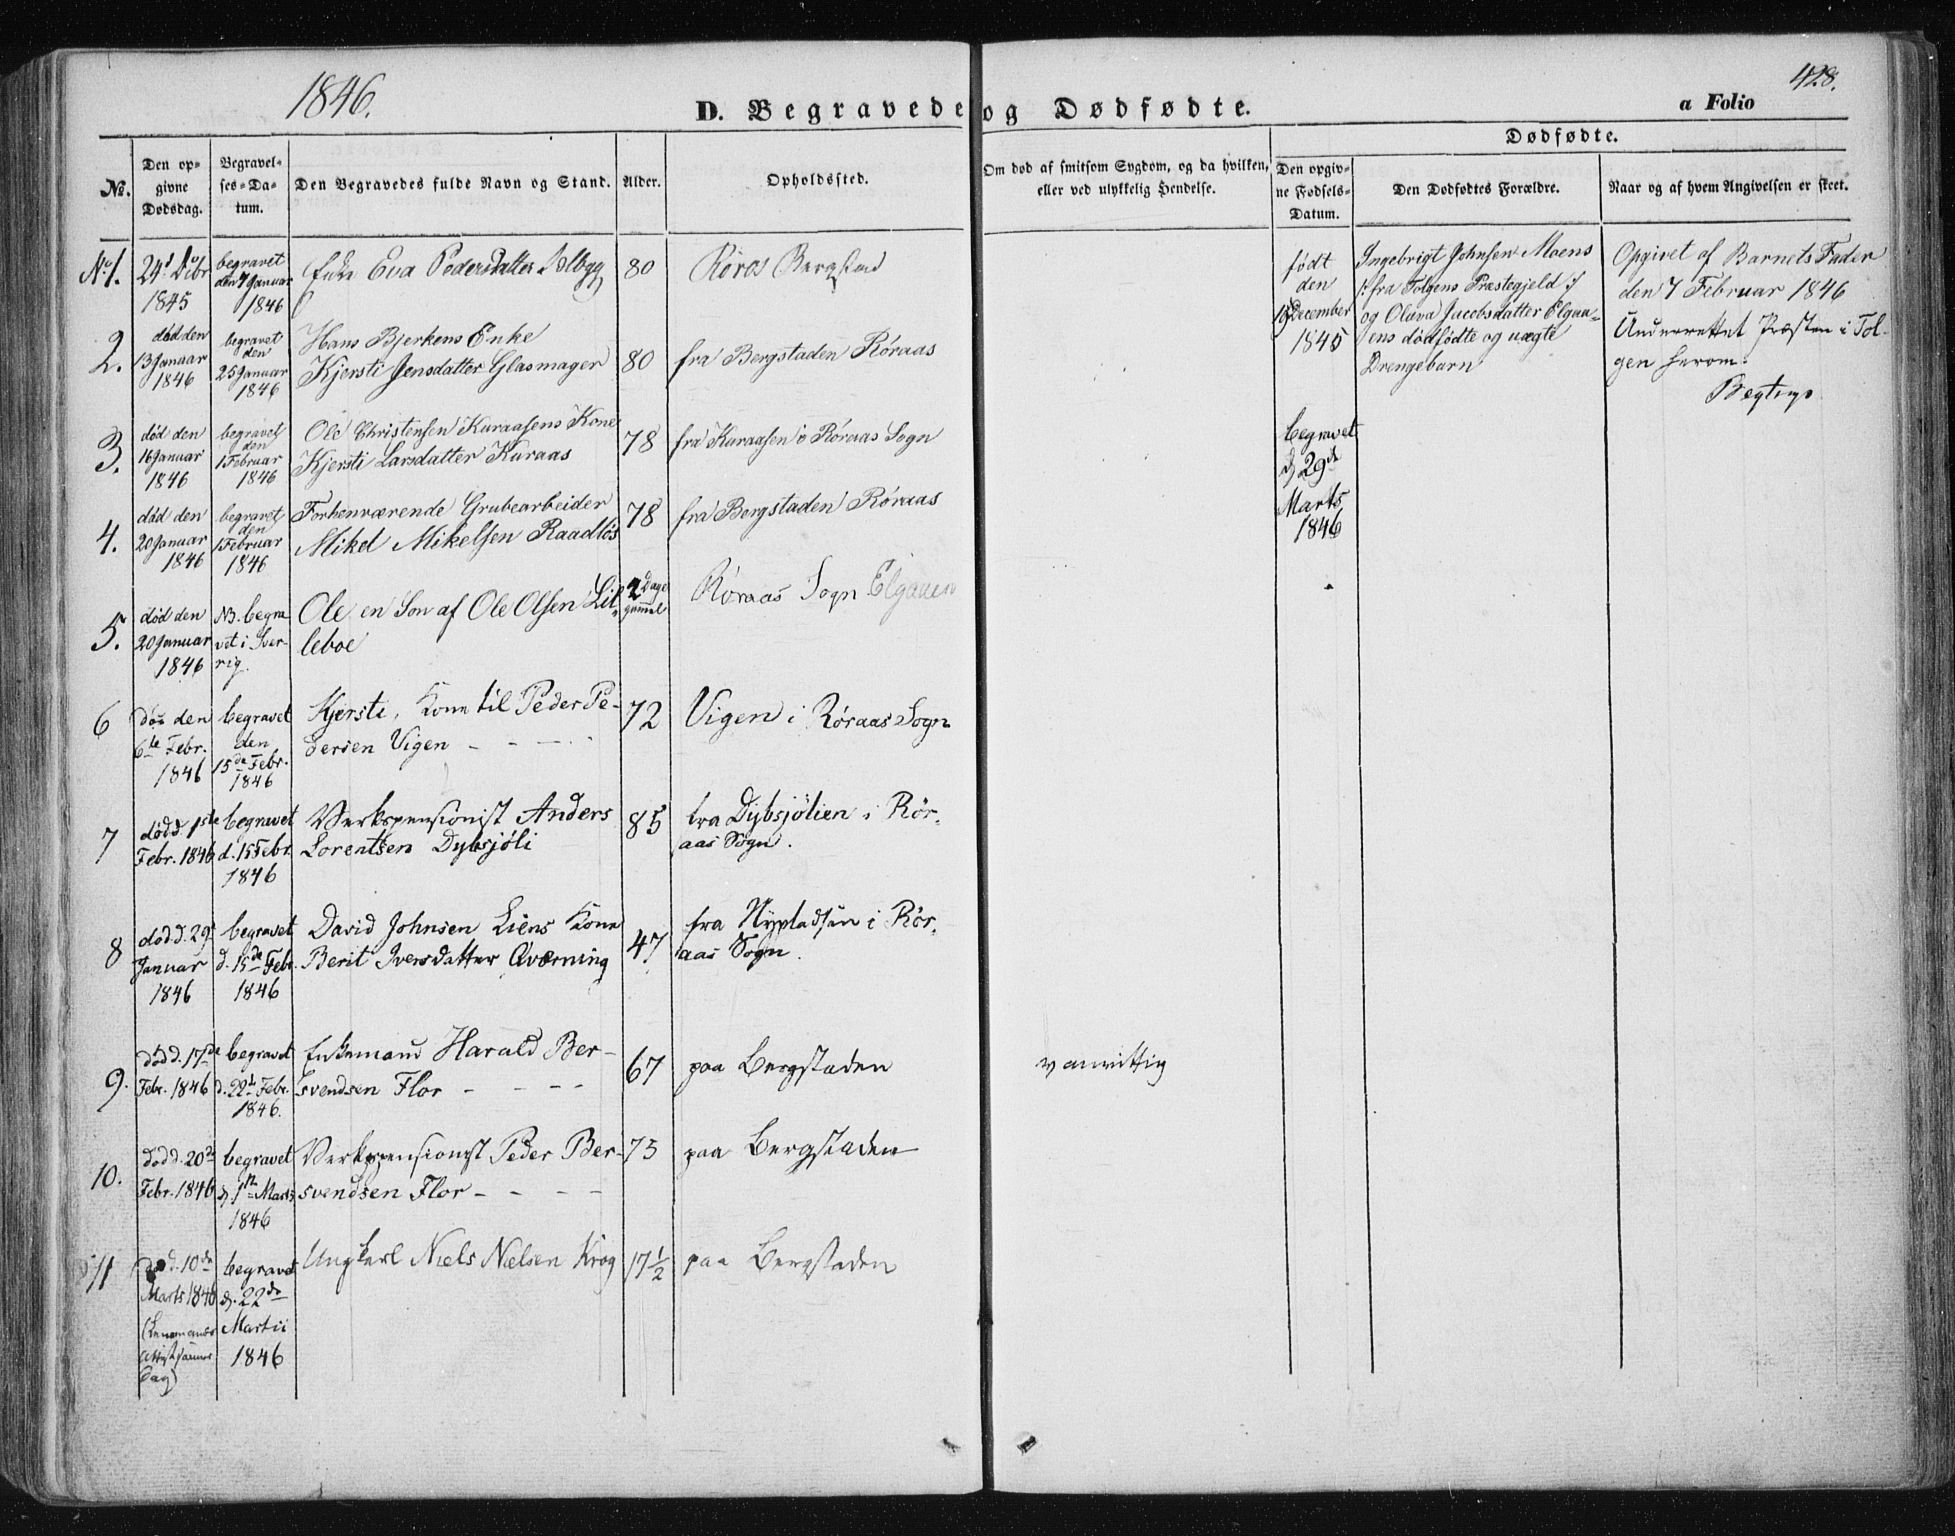 1846.
428.
D. Begravede og Dødfødte.
a Folio
No.
Den op-
givne
Dødsdag.
Begravel-
ses-Da-
tum.
Den Begravedes fulde Navn og Stand.
Alder.
Opholdssted.
Om død af smitsom Sygdom, og da hvilken,
eller ved ulykkelig Hendelse.
Dødfødte.
Den opgiv-
ne Fødsels-
Datum.
Den Dødfødtes Forældre.
Naar og af hvem Angivelsen er skeet.
No 1.
24d Dcbr
1845
begravet
den 7 Januar
1846
Enke Eva Pedersdatter
80
Røros Bergstad
2.
død den
13 Januar
1846
begravet
den
25 Januar
1846
Hans Bjerkens Enke
Kjersti Jensdatter Glasmager
80
fra Bergstaden Røraas
3.
død den
16 Januar
1846
begravet
den
1 Februar
1846
Ole Christensen Kuraasens Kone
Kjersti Larsdatter Kuraas
78
fra Kuraasen i Røraas Sogn
4.
død den
20 Januar
1846
begravet
den
1 Februar
1846
Forhenværende Grubearbeider
Mikel Mikelsen Raadløs
78
fra Bergstaden Røraas
5.
død den
20 Januar
1846
NB. begra
vet i Sver-
rig.
Ole en Søn af Ole Olsen Lil-
leboe
2 Dage
gammel
Røraas Sogn Elgaaen
6
død den
6te Febr.
1846
begravet
den
15de Febr.
1846
Kjersti, Kone til Peder Pe-
dersen Vigen
72
Vigen i Røraas Sogn
7
død d. 1ste
Febr. 1846
begravet
d. 15 Febr.
1846
Verkspensionist Anders
Lorentsen Dybsjøli
85
fra Dybsjølien i Rør-
aas Sogn.
8
død d. 29
Januar
1846
begravet
d. 15de Febr.
1846
David Johnsen Liens Kone
Berit Iversdatter Qværning
47
fra Nypladsen i Rør-
aas Sogn.
9.
død d. 17de
Febr. 1846
begravet
d. 22de Febr.
1846.
Enkemand Harald Ber-
svendsen Flor
67
paa Bergstaden
vanvittig
10.
død d. 20de
Febr. 1846
begravet
d. 1ste Marts
1846
Verkspensionist Peder Ber-
svendsen Flor
75
paa Bergstaden
11
død d. 10de
Marts 1846
begravet
d. 22de
Martii
1846
Ungkarl Niels Nielsen Krog
17 1/2
paa Bergstaden
født
den
December
1845
begravet
d 29de
Marts
1846
Ingebrigt Johnsen Moens
/: fra Tolgens Præstegjeld :/
og Oluva Jacobsdatter Elgaa-
ens dødfødte og uægte
Drengebarn
Opgivet af Barnets Fader
den 7 Februar 1846
Underrettet Præsten i Tol-
gen herom.
Begtrup